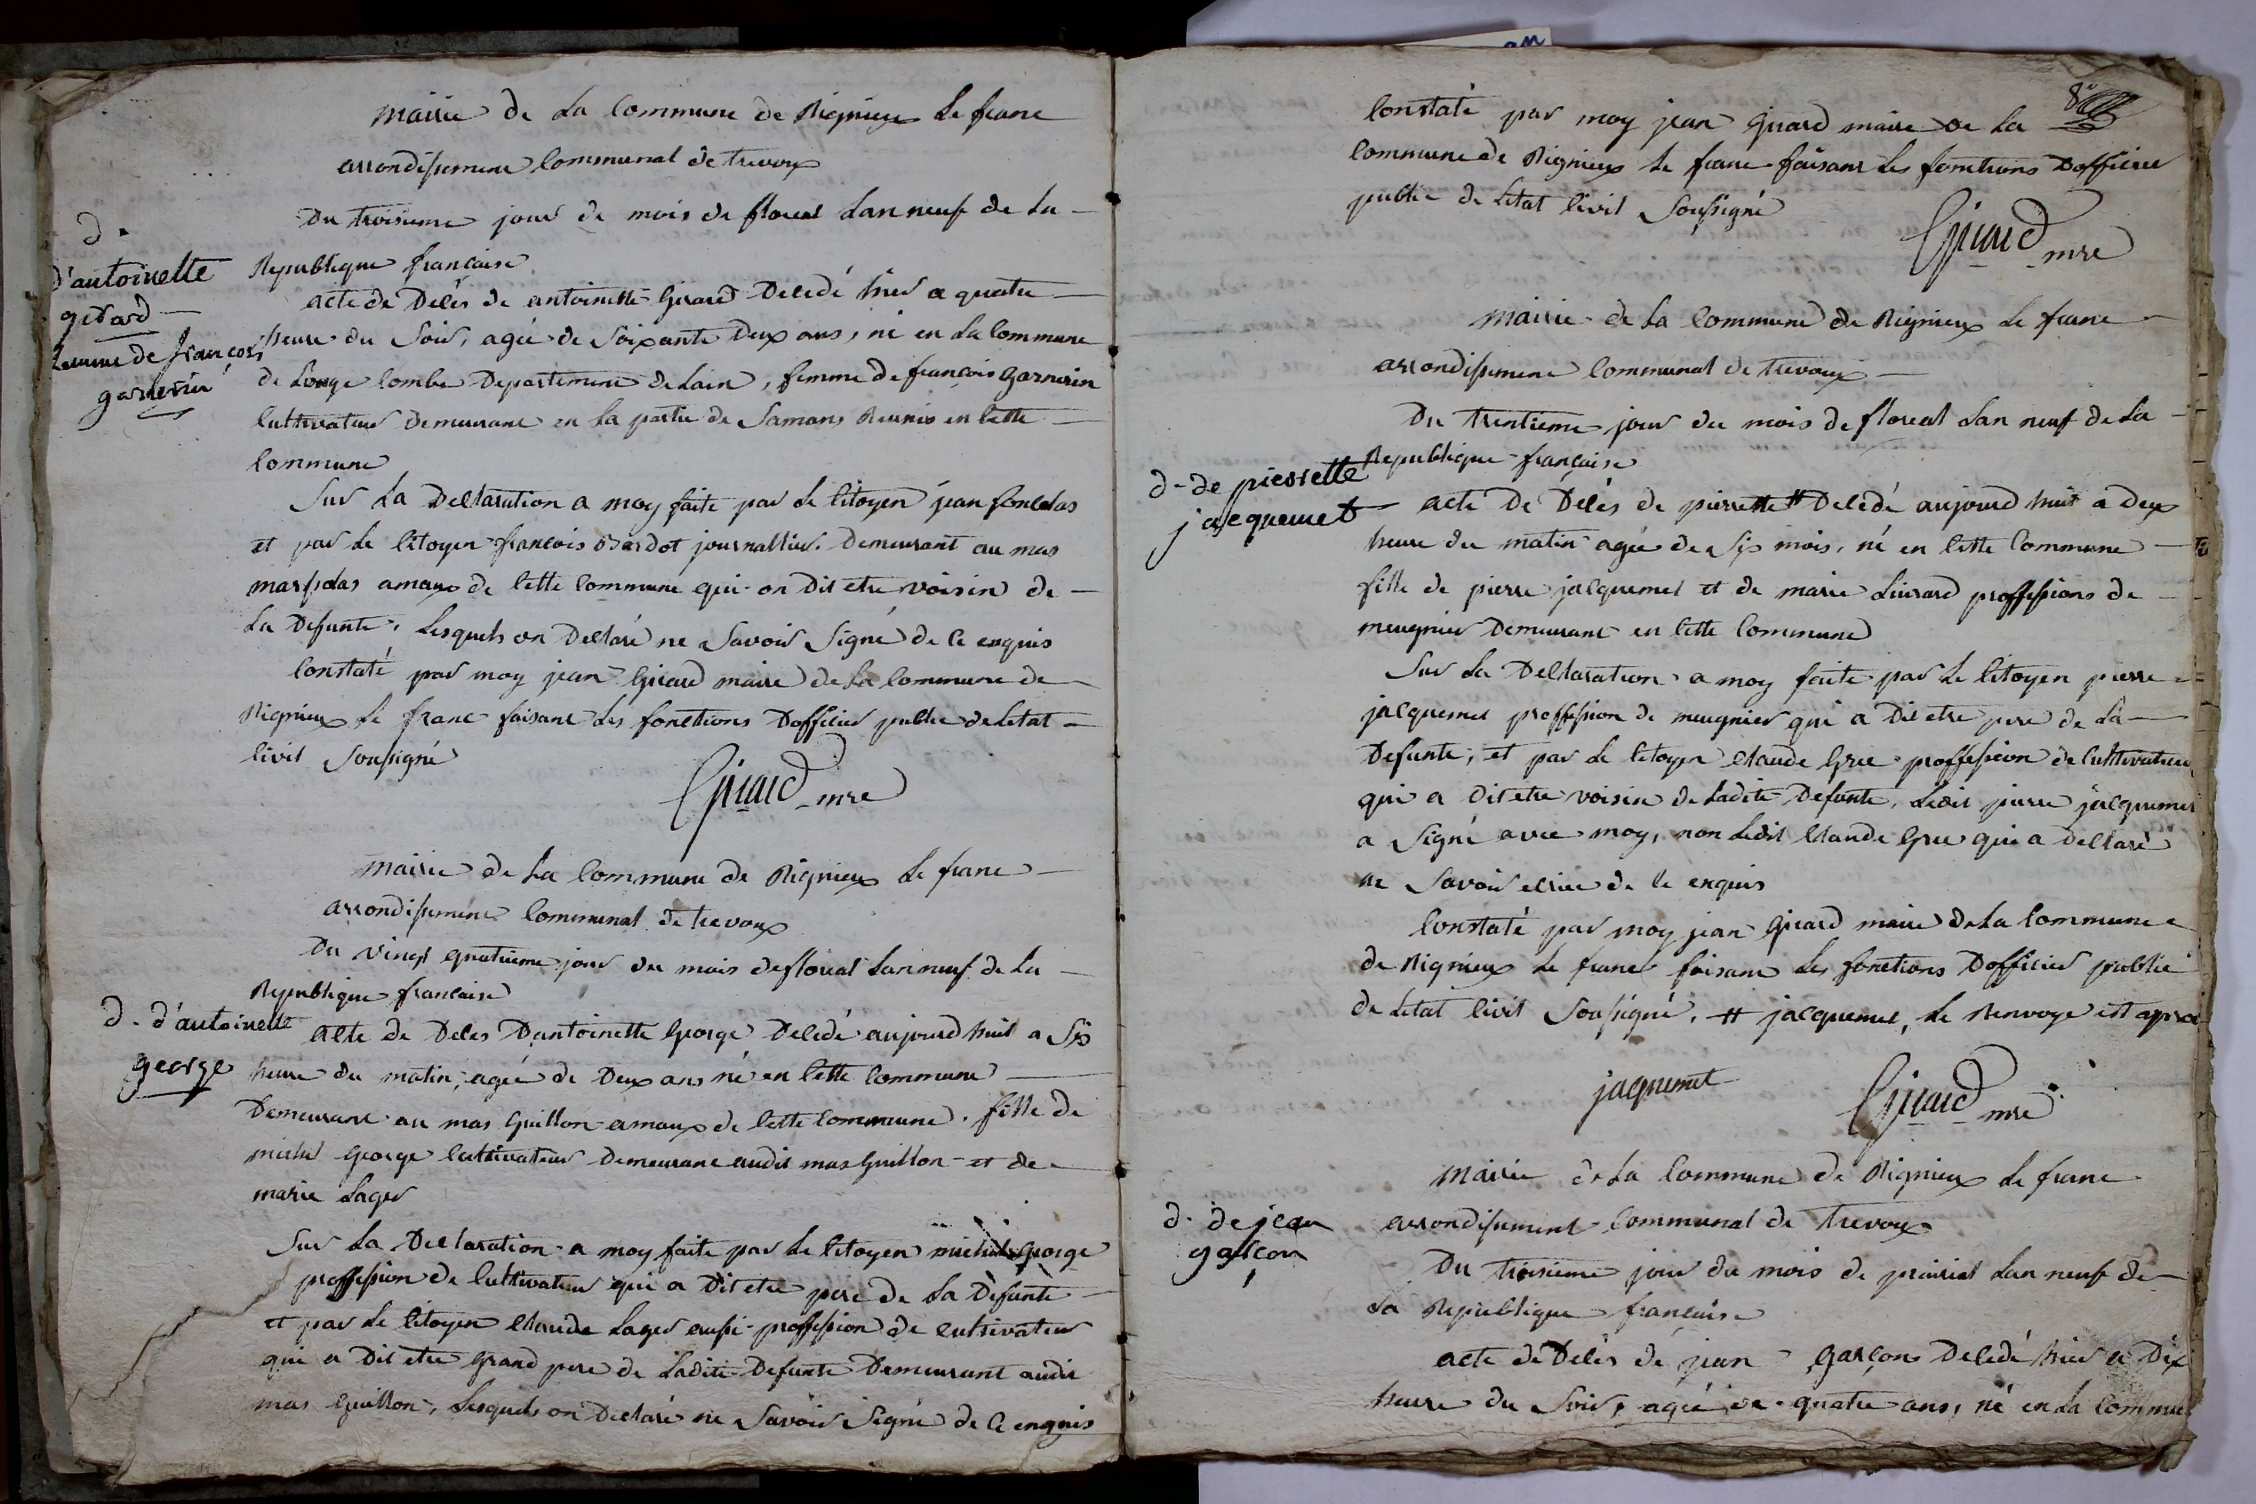 mairie de La Commune de Rignieux Le franc
arrondissement Communal de trevoux
Du troisieme jour de mois de floreal Lan neuf de La
Republique francaise
d.
d'antoinette
girard
femme de françois
garnerin
acte de Déces de antoinette Girard Décédé hier a quatre
heure du Soir, agée de Soixante Deux ans, né en La Commune
de Longe Combe Departement de Lain, femme de françois Garnerin
Cultivateur Demeurant en La partie de Samans Reunis en Cette
Commune
Sur La Declaration a moy faite par Le Citoyen jean
et par Le Citoyen francois Bardot journallier Demeurant au mas
amaux de Cette Commune qui on Dit etre voisin de
La Defunte, Lesquels on Declaré ne Savoir Signé de Ce enquis
Constaté par moy jean Girard maire de La Commune de
Rignieux Le franc faisant Les fonctions Dofficier public de Letat
Civil Soussigné
Girard mre
mairie de La Commune de Rignieux Le franc
arrondissement Communal de trevoux
Du vingt quatrieme jour du mois de floreal Lan neuf de La
Republique francaise
d. d'antoinette
george
acte de Deces Dantoinette George Décédé aujourd huit a Six
heure du matin, agée de Deux ans né en Cette Commune
Demeurant au mas Guillon amaux de Cette Commune, fille de
michel George Cultivateur Demeurant audit mas Guillon et de
marie Lager
Sur La Declaration a moy faite par Le Citoyen michel George
proffession de Cultivateur qui a Dit etre pere de La Défunte
et par Le Citoyen Claude Lager aussi proffession de Cultivateur
qui a Dit etre Grand pere de Ladite Defunte Demeurant audit
mas Guillon, Lesquels on Declaré ne Savoir Signé de Ce enquis
8
Constaté par moy jean Girard maire de La
Commune de Rignieux Le franc faisant Les fonctions Dofficier
public de Letat Civil Soussigné
Girard mre
mairie de La Commune de Rignieux Le franc
arrondissement Communal de trevoux
Du trentieme jour du mois de floreal Lan neuf de La
Republique française
d. de pierrette
jacquemet
acte De Déces de pierrette # Décédé aujourd huit a deux
heure du matin agée de Six mois, né en Cette Commune
fille de pierre jacquemet et de marie Liurard proffessions de
meugnier Demeurant en Cette Commune
Sur La Declaration a moy faite par Le Citoyen pierre
jacquemet proffession de meugnier qui a Dit etre pere de La
Defunte, et par Le Citoyen Claude Grée proffession de Cultivateur
qui a Dit etre voisin de Ladite Defunte, Ledit pierre jacquemet
a Signé avec moy, non Ledit Claude Grée qui a Declaré
ne Savoir ecrire de Ce enquis
Constaté par moy jean Girard maire de La Commune
de Rignieux Le franc faisant Les fonctions Dofficier public
de Letat Civil Soussigné, # jacquemet, Le Renvoye est
jaquemet
Girard mre
mairie de La Commune de Rignieux Le franc
arrondissement Communal de trevoux
d. de jean
garçon
Du troisieme jour du mois de prairial Lan neuf de
La Republique francaise
acte de Déces de jean Garçons Décédé hier a Dix
heure du Soir, agée de quatre ans, né en La Commune